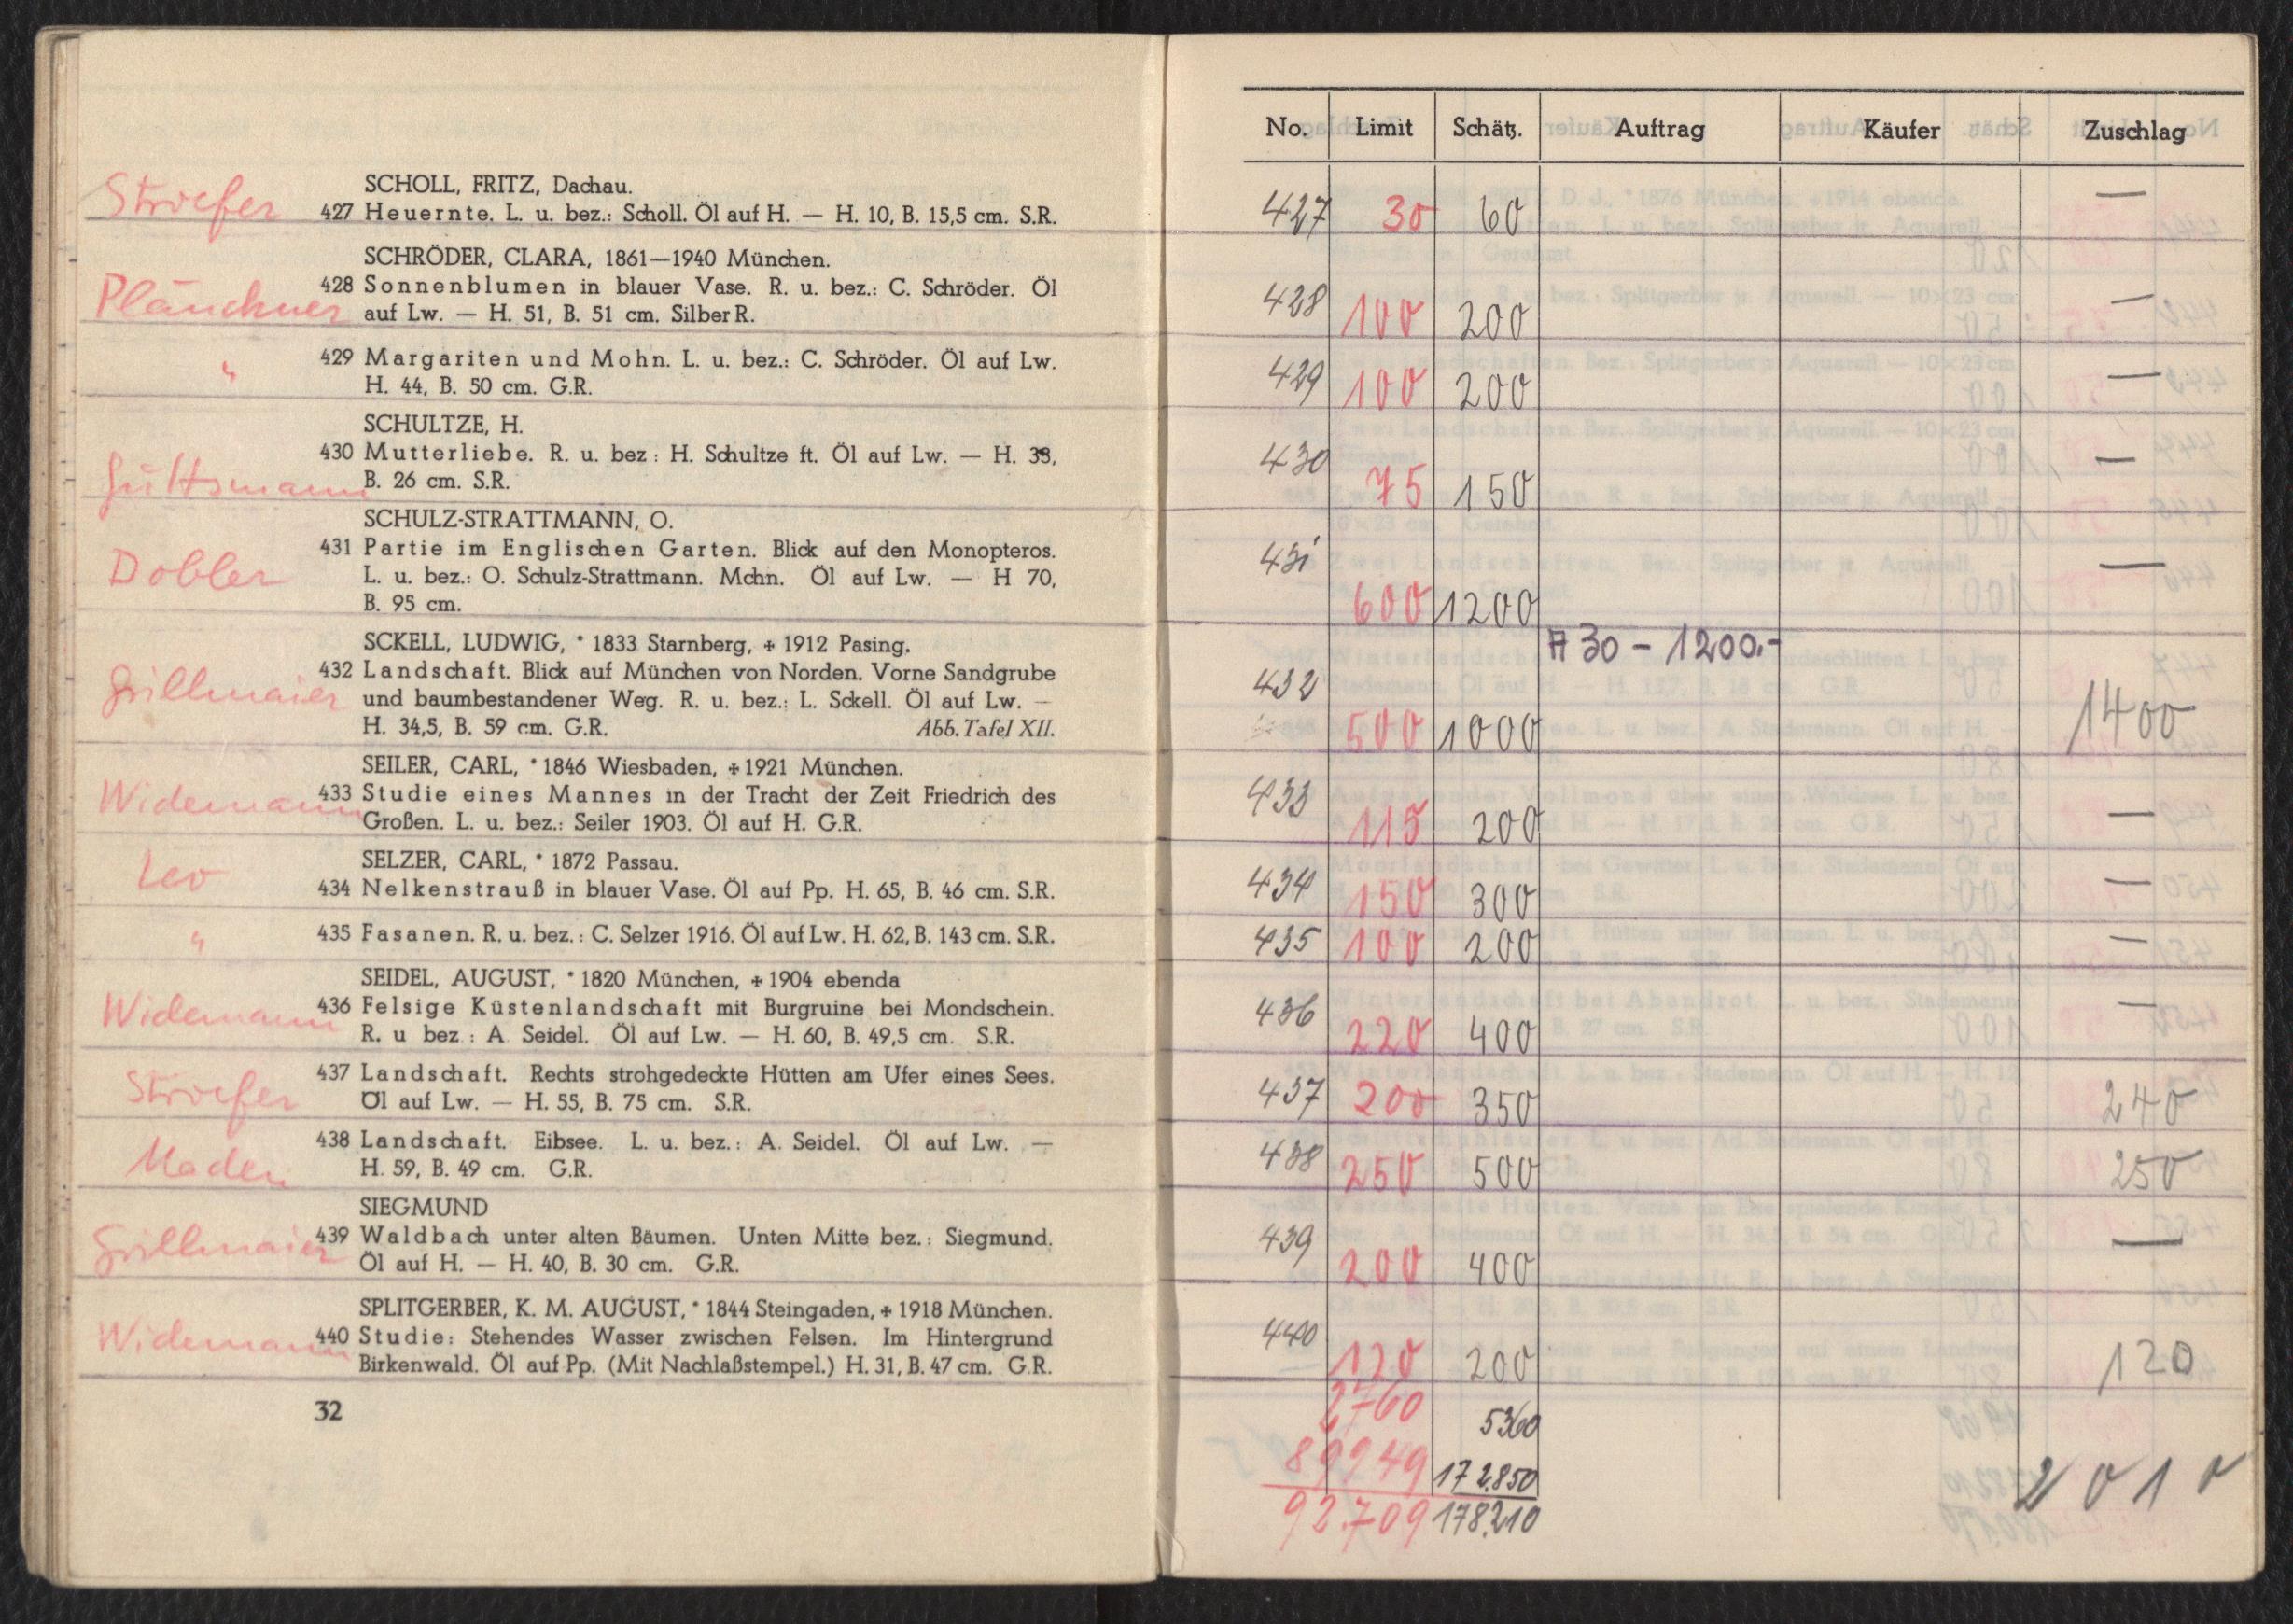 SCHOLL, FRITZ, Dachau.
Stroefer 427 Heuernte. L. u. bez.: Scholl. Öl auf H. — H. 10, B. 15,5 cm. S.R.
SCHRÖDER, CLARA, 1861—1940 München.
428 Sonnenblumen in blauer Vase. R. u. bez.: C. Schröder. Öl
Plänckner auf Lw. — H. 51, B. 51 cm. Silber R.
" 429 Margariten und Mohn. L. u. bez.: C. Schröder. Öl auf Lw.
H. 44, B. 50 cm. G.R.
SCHULTZE, H.
430 Mutterliebe. R. u. bez : H. Schultze ft. Öl auf Lw. — H. 33,
B. 26 cm. S.R.
SCHULZ-STRATTMANN, O.
431 Partie im Englischen Garten. Blick auf den Monopteros.
Dobler L. u. bez.: O. Schulz-Strattmann. Mchn. Öl auf Lw. — H 70,
B. 95 cm.
SCKELL, LUDWIG, * 1833 Starnberg, + 1912 Pasing.
432 Landschaft. Blick auf München von Norden. Vorne Sandgrube
Grillmaier und baumbestandener Weg. R. u. bez.: L. Sckell. Öl auf Lw. —
H. 34,5, B. 59 cm. G.R. Abb. Tafel XII.
SEILER, CARL, * 1846 Wiesbaden, + 1921 München.
Widemann 433 Studie eines Mannes in der Tracht der Zeit Friedrich des
Großen. L. u. bez.: Seiler 1903. Öl auf H. G.R.
SELZER, CARL, * 1872 Passau.
Leo 434 Nelkenstrauß in blauer Vase. Öl auf Pp. H. 65, B. 46 cm. S.R.
" 435 Fasanen. R. u. bez.: C. Selzer 1916. Öl auf Lw. H. 62, B. 143 cm. S.R.
SEIDEL, AUGUST, * 1820 München, + 1904 ebenda
Widemann 436 Felsige Küstenlandschaft mit Burgruine bei Mondschein.
R. u bez.: A Seidel. Öl auf Lw. — H. 60, B. 49,5 cm. S.R.
437 Landschaft. Rechts strohgedeckte Hütten am Ufer eines Sees.
Stroefer Öl auf Lw. — H. 55, B. 75 cm. S.R.
438 Landschaft. Eibsee. L. u. bez.: A. Seidel. Öl auf Lw. —
Mader H. 59, B. 49 cm. G.R.
SIEGMUND
Grillmaier 439 Waldbach unter alten Bäumen. Unten Mitte bez.: Siegmund.
Öl auf H. — H. 40, B. 30 cm. G.R.
SPLITGERBER, K. M. AUGUST, * 1844 Steingaden, + 1918 München.
Widemann 440 Studie: Stehendes Wasser zwischen Felsen. Im Hintergrund
Birkenwald. Öl auf Pp. (Mit Nachlaßstempel.) H. 31, B. 47 cm. G.R.
32
No. Limit Schätz. Auftrag Käufer Zuschlag
427 30 60 —
428 100 200 —
429 100 200 —
430 75 150 —
431 600 1200 —
A 30 - 1200.-
432 500 1000 1400
433 115 200 —
434 150 300 —
435 100 200 —
436 220 400 —
437 200 350 240
438 250 500 250
439 200 400 —
440 120 200 120
2760 5360
89949 172.850 2010
92.709 178.210